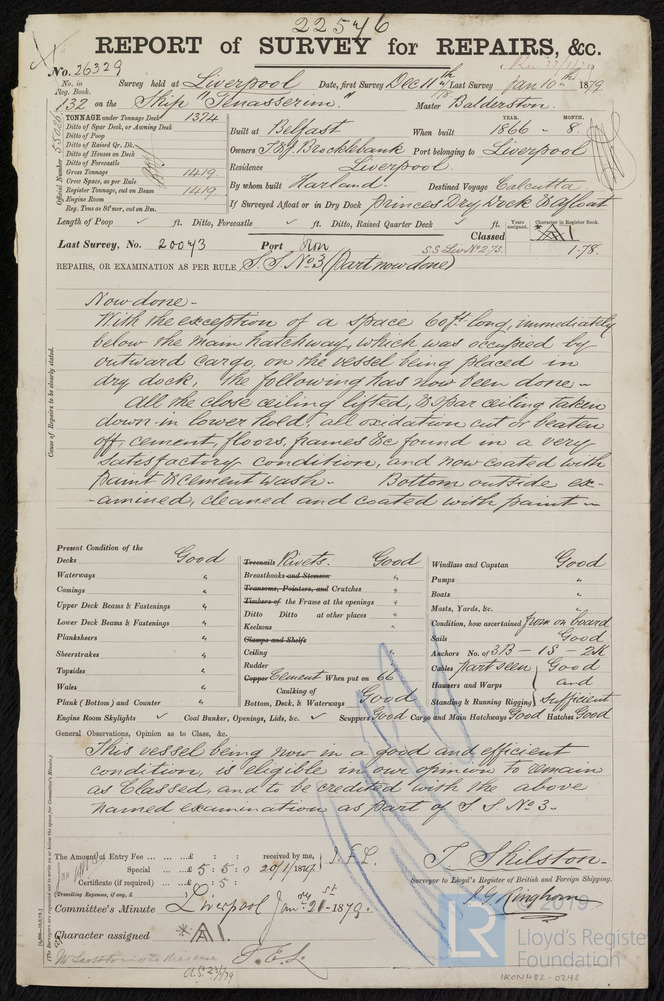 22576
REPORT of SURVEY for REPAIRS, &c.
No. 26329
Survey held at Liverpool Date, first Survey Dec 11th Last Survey Jan 10th 1879
No. in Reg. Book.
132 on the Ship "Tenasserim." Master Balderston.
TONNAGE under Tonnage Deck 1374
Ditto of Spar Deck, or Awning Deck
Ditto of Poop
Ditto of Raised Qr. Dk.
Ditto of Houses on Deck
Ditto of Forecastle
Gross Tonnage 1419
Crew Space, as per Rule
Register Tonnage, cut on Beam 1419
Engine Room
Reg. Tons as St'mer, cut on Bm.
Official Number
Built at Belfast When built YEAR. 1866 - MONTH. 8.
Owners T & J Brocklebank Port belonging to Liverpool
Residence Liverpool
By whom built Harland. Destined Voyage Calcutta
If Surveyed Afloat or in Dry Dock Princes Dry Dock & afloat
Length of Poop ✓ ft. Ditto, Forecastle ✓ ft. Ditto, Raised Quarter Deck ✓ ft.
Years assigned. Character in Register Book.
Last Survey, No. 20043 Port Lion Classed *A1
S.S Liv No 2.73. 1.78.
REPAIRS, OR EXAMINATION AS PER RULE S. S. No 3 (Part now done)
Now done -
With the exception of a space 60 ft long, immediately
below the main hatchway, which was occupied by
outward cargo, on the vessel being placed in
dry dock, the following has now been done -
All the close ceiling lifted, & spar ceiling taken
down in lower hold, all oxidation cut or beaten
off, cement, floors, frames &c found in a very
satisfactory condition, and now coated with
paint & cement wash. Bottom outside ex-
-amined, cleaned and coated with paint -
Cause of Repairs to be clearly stated.
Present Condition of the
Decks Good
Waterways "
Comings "
Upper Deck Beams & Fastenings "
Lower Deck Beams & Fastenings "
Planksheers "
Sheerstrakes "
Topsides "
Wales "
Plank (Bottom) and Counter "
Treenails Rivets. Good
Breasthooks and Stemson "
Transoms, Pointers, and Crutches "
Timbers of the Frame at the openings "
Ditto Ditto at other places "
Keelsons "
Clamps and Shelfs
Ceiling "
Rudder "
Copper Cement When put on 66
Caulking of
Bottom, Deck, & Waterways Good
Windlass and Capstan Good
Pumps "
Boats "
Masts, Yards, &c. "
Condition, how ascertained from on board
Sails Good
Anchors No. of 3B - 1S - 2K
Cables part seen Good
Hawsers and Warps and
Standing & Running Rigging sufficient
Engine Room Skylights ✓ Coal Bunker, Openings, Lids, &c. ✓ Scuppers Good Cargo and Main Hatchways Good Hatches Good
General Observations, Opinion as to Class, &c.
This vessel being now in a good and efficient
condition, is eligible in our opinion to remain
as Classed, and to be credited with the above
named examination as part of S S No 3.
The Amount of Entry Fee ... ... £ : : received by me,
Special ... ... £ 5 : 5 : 0 20/1/1879
Certificate (if required) ... £ : 5 :
(Travelling Expenses, if any, £ )
T. Skilston.
Surveyor to Lloyd's Register of British and Foreign Shipping.
J. G. Kingham
Committee's Minute Liverpool Jany 21st 1879.
Character assigned *A1.
LR
Lloyd's Register
Foundation
IRON482-0248